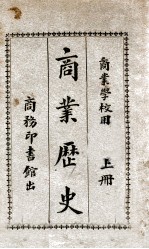 商業學校用
上冊
商業歷史
商務印書館出